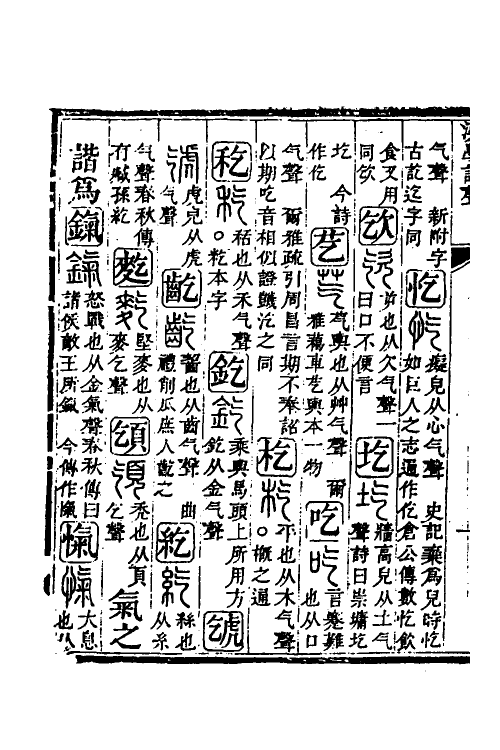 气聲 新附字
古說迄字同
忔
癡皃从心气聲 史記棄為兒時忔
如巨人之志通作仡倉公傳數忔飲
食又用
同飲
㰟
也从欠气聲一
曰口不便言
圪
牆高皃从土气
聲詩曰崇墉圪
圪 今詩
作仡
芞
芞輿也从艸气聲 爾
雅藒車芞輿本一物
吃
言蹇難
也从口
气聲 爾雅疏引周昌言期不奉詔
以期吃音相似證饑汔之同
杚
平也从木气聲
○概之通
秳也从禾气聲
○籺本字
釳
乘輿馬頭上所用方
釳从金气聲
虎皃从虎
气聲
齕
齧也从齒气聲 曲
禮削瓜庶人齕之
紇
絲也
从糸
气聲春秋傳
有臧孫紇
麧
堅麥也从
麥乞聲
禿也从頁
乞聲
氣之
諧為
鎎
怒戰也从金氣聲春秋傳曰
諸侯敵王所鎎 今傳作愾
愾
大息
也从